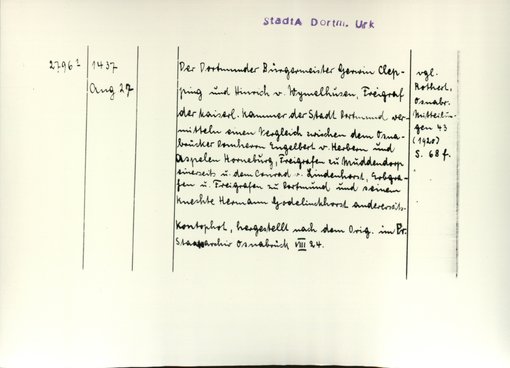 StadtA Dortm. Urk
2796²
1437
Aug 27
Der Dortmunder Bürgermeister Gerwin Clep-
ping und Hinrich v. Wymelhusen, Freigraf
der kaiserl. Kammer der Stadt Dortmund ver-
mitteln einen Vergleich zwischen dem Osna-
brücker Domherrn Engelbert v. Herbern und
Aspelan Horneburg, Freigrafen zu Müddendorp
einerseits u. dem Conrad v. Lindenhorst, Erbgra-
fen u. Freigrafen zu Dortmund und seinem
Knechte Hermann Godelinckhorst andererseits.
Kontophot, hergestellt nach dem Orig. im Pr.
Staatsarchiv Osnabrück VIII 24.
vgl.
Rothert,
Osnabr.
Mitteilun-
gen 43
(1920)
S. 68 f.